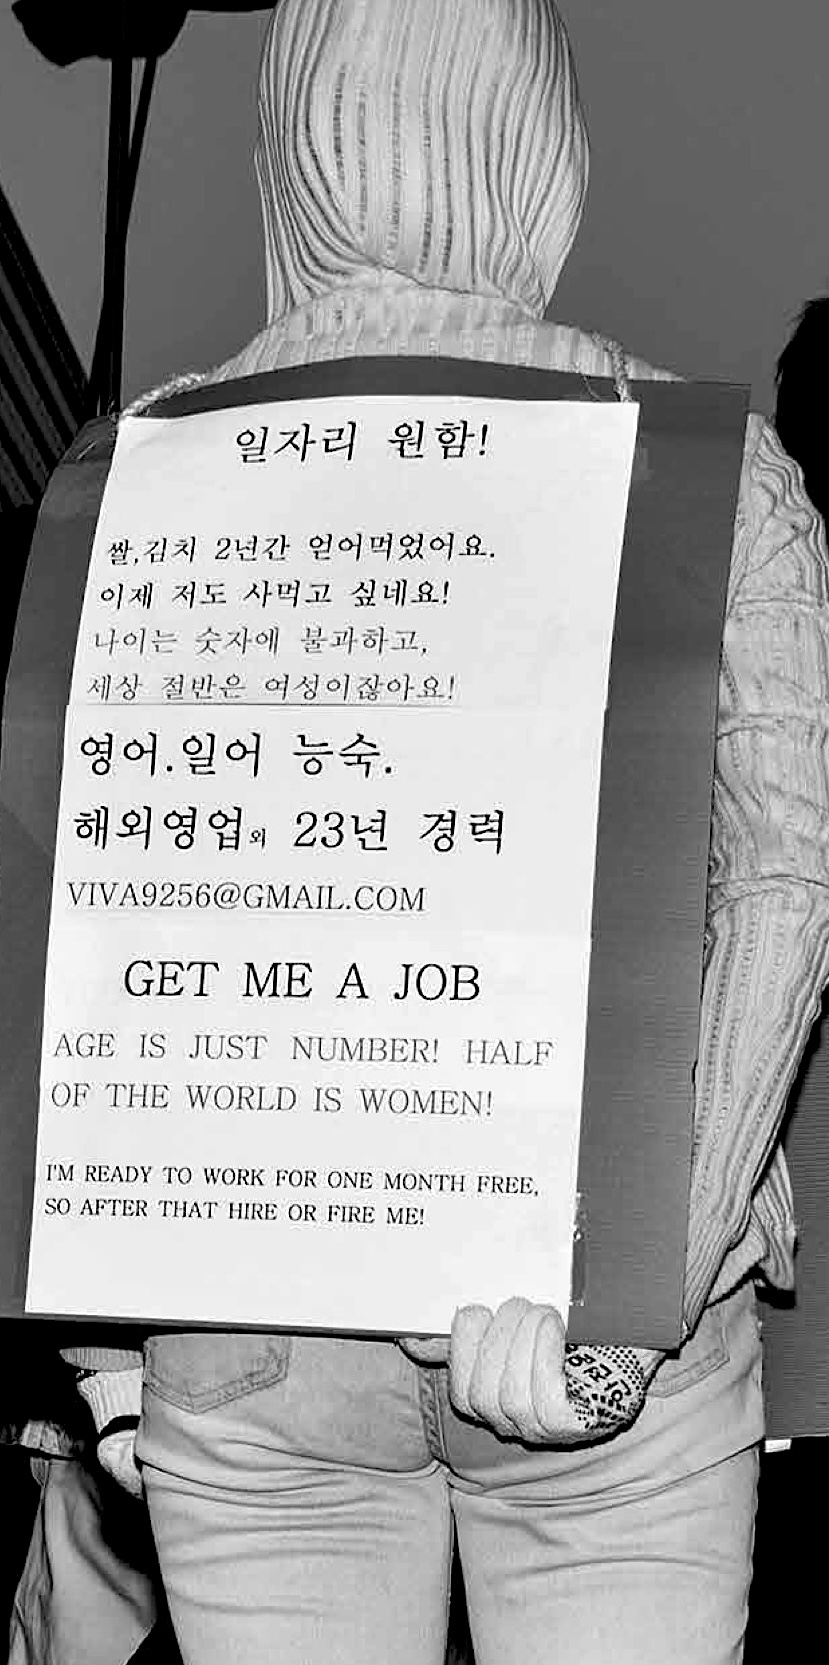 일자리 원함!
쌀,김치 2년간 얻어먹었어요.
이제 저도 사먹고 싶네요!
나이는 숫자에 불과하고,
세상 절반은 여성이잖아요!
영어.일어 능숙.
해외영업외 23년 경력
VIVA9256@GMAIL.COM
GET ME A JOB
AGE IS JUST NUMBER! HALF
OF THE WORLD IS WOMEN!
I'M READY TO WORK FOR ONE MONTH FREE,
SO AFTER THAT HIRE OR FIRE ME!